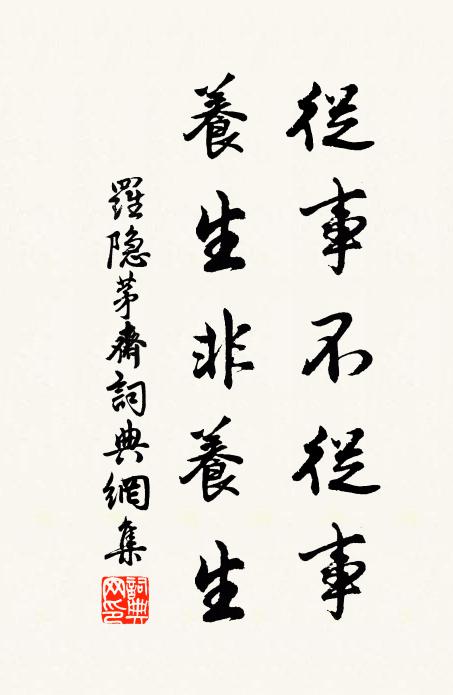 從事不從事
養生非養生
羅隐茅齋詞典網集
詞典
网印